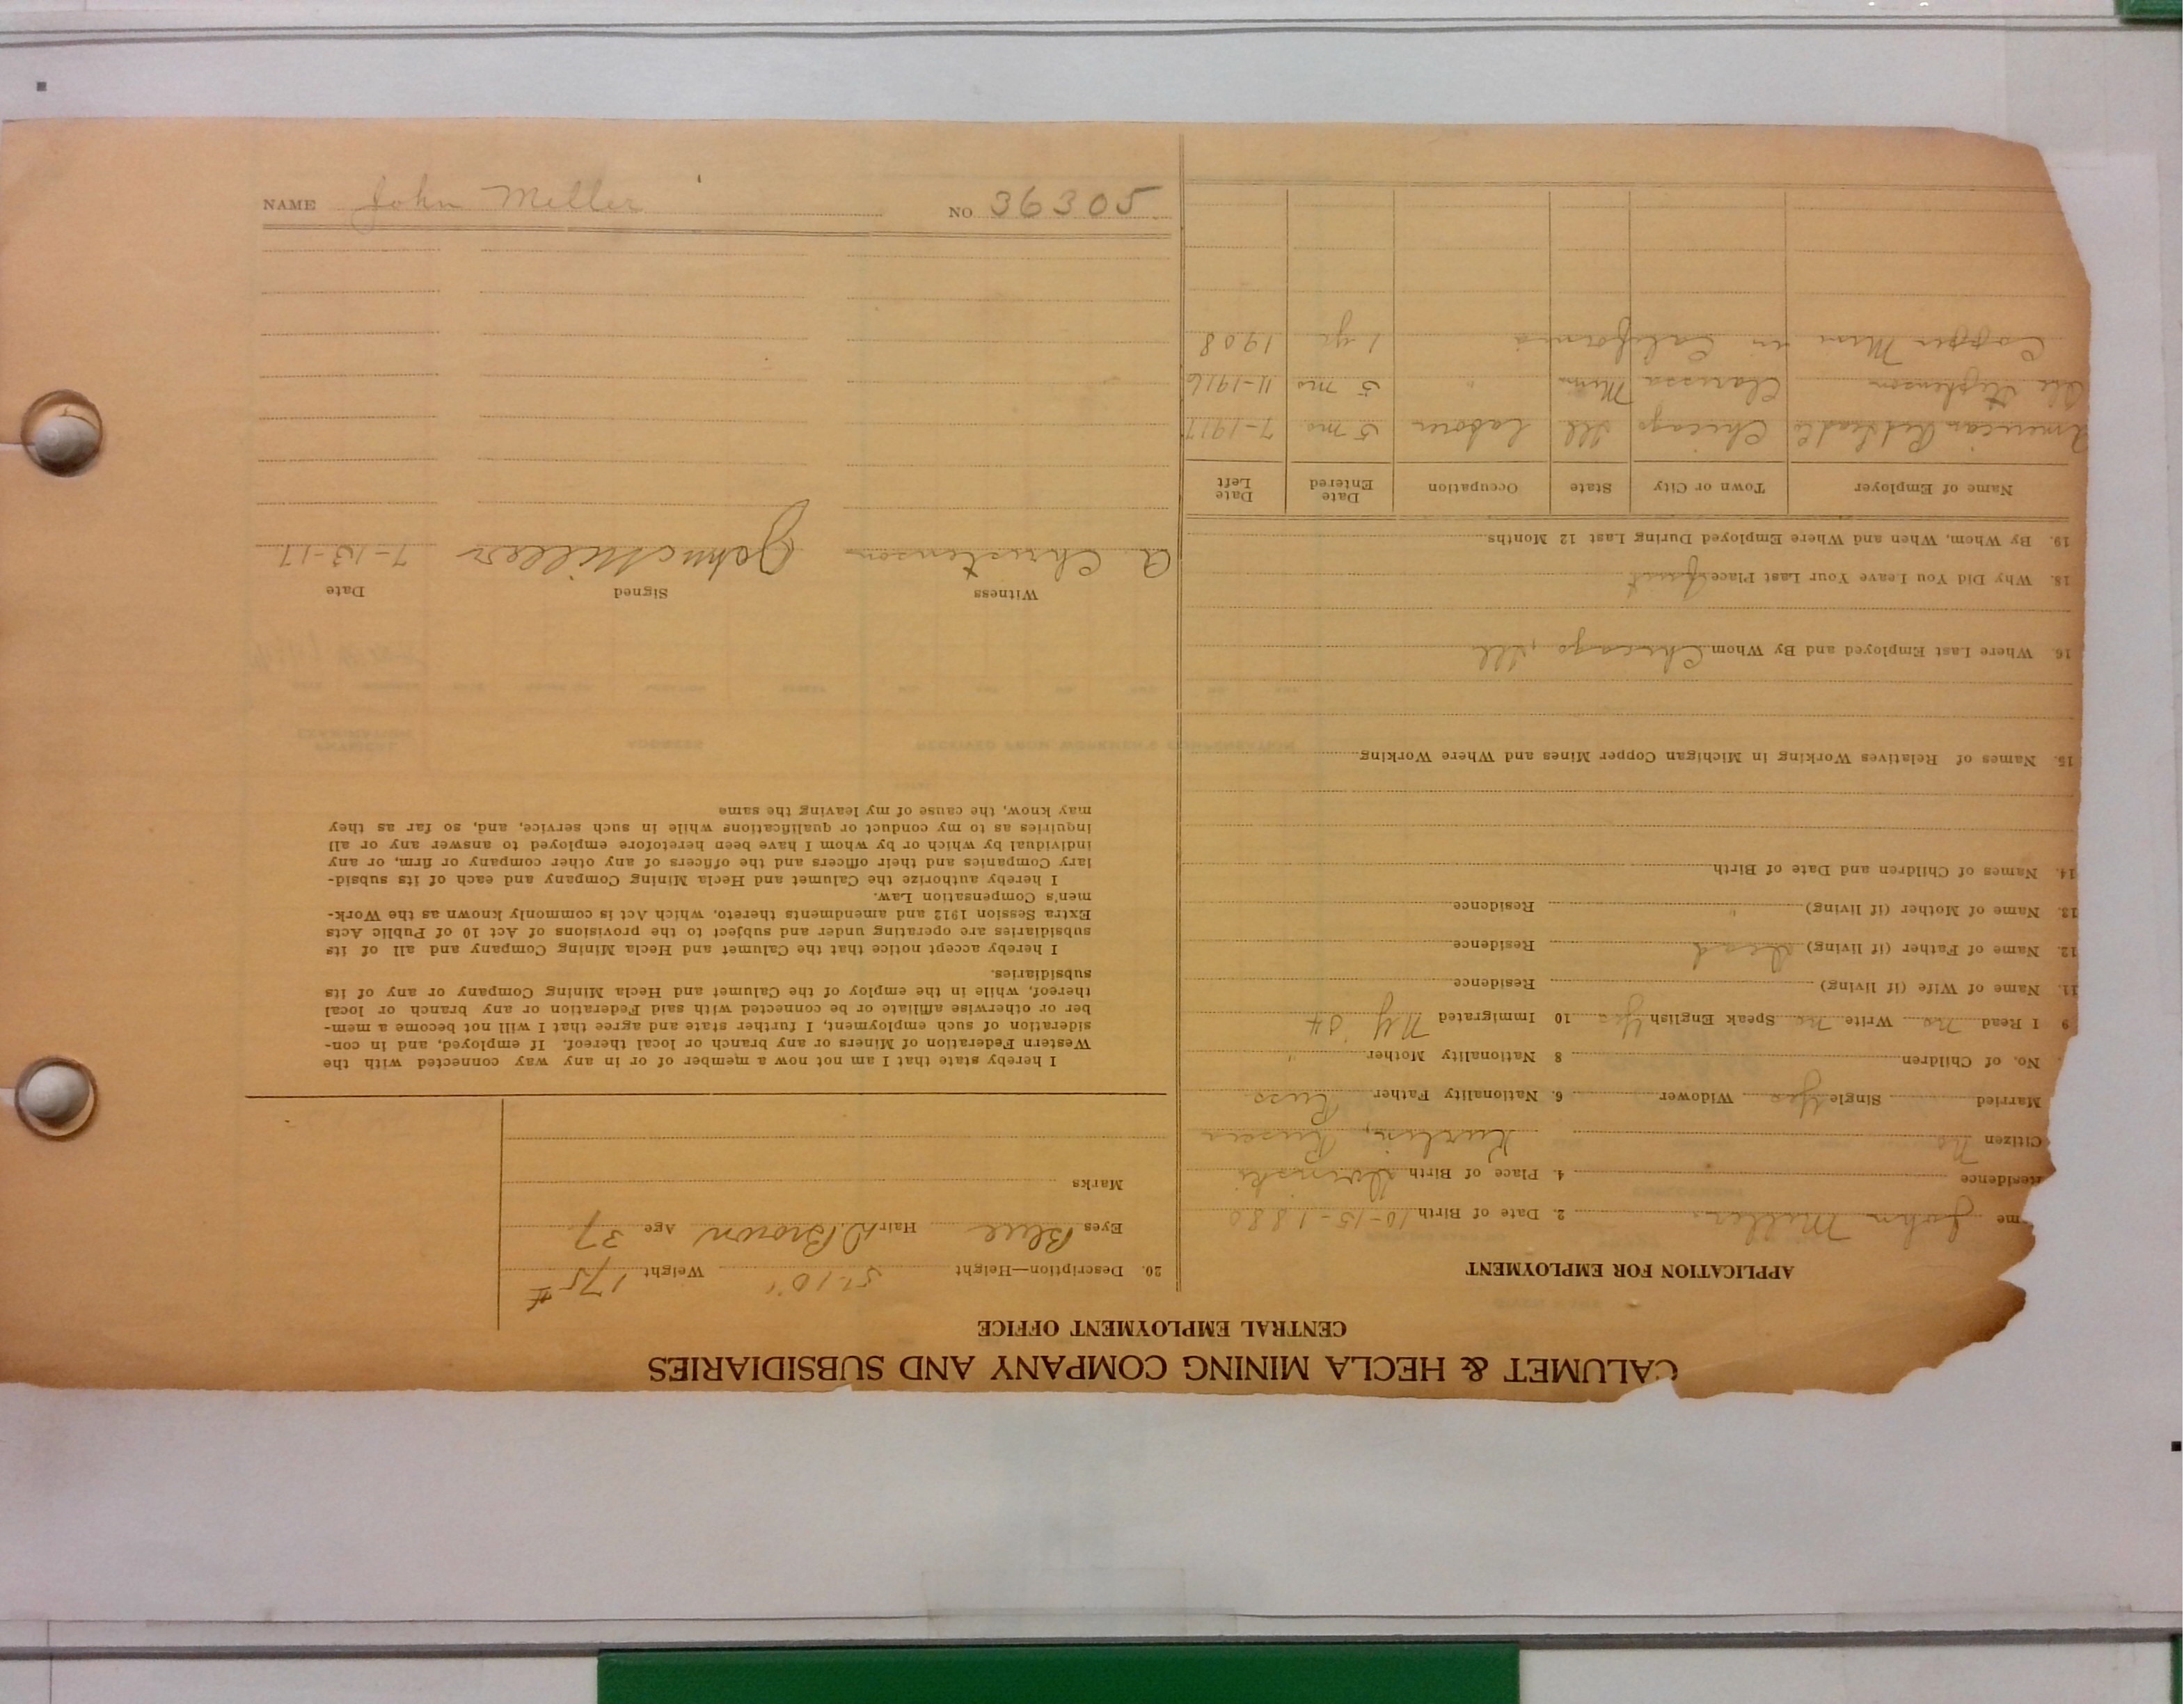 CALUMET & HECLA MINING COMPANY AND SUBSIDIARIES
CENTRAL EMPLOYMENT OFFICE
APPLICATION FOR EMPLOYMENT
me John Miller 2. Date of Birth 10-15-1880
Residence 4. Place of Birth
Citizen No
Married Single Yes Widower 6. Nationality Father Russ
No. of Children 8 Nationality Mother "
9 I Read No Write No Speak English Yes 10 Immigrated NY
11. Name of Wife (if living) Residence
12. Name of Father (if living) Dead Residence
13. Name of Mother (if living) " Residence
14. Names of Children and Date of Birth
15. Names of Relatives Working in Michigan Copper Mines and Where Working
16. Where Last Employed and By Whom Chicago, Ill
18. Why Did You Leave Your Last Place Quit
19. By Whom, When and Where Employed During Last 12 Months
Name of Employer Town or City State Occupation Date Entered Date Left
American Chicago Ill Laborer 5 mo 7-1917
Clarissa Minn " 5 mo 11-1916
Copper Mine in California 1 yr 1908
20. Description—Height 5'-10" Weight 175#
Eyes Blue Hair D. Brown Age 37
Marks
I hereby state that I am not now a member of or in any way connected with the
Western Federation of Miners or any branch or local thereof. If employed, and in con-
sideration of such employment, I further state and agree that I will not become a mem-
ber or otherwise affiliate or be connected with said Federation or any branch or local
thereof, while in the employ of the Calumet and Hecla Mining Company or any of its
subsidiaries.
I hereby accept notice that the Calumet and Hecla Mining Company and all of its
subsidiaries are operating under and subject to the provisions of Act 10 of Public Acts
Extra Session 1912 and amendments thereto, which Act is commonly known as the Work-
men's Compensation Law.
I hereby authorize the Calumet and Hecla Mining Company and each of its subsid-
iary Companies and their officers and the officers of any other company or firm, or any
individual by which or by whom I have been heretofore employed to answer any or all
inquiries as to my conduct or qualifications while in such service, and, so far as they
may know, the cause of my leaving the same
Witness Signed Date
A Christenson John Miller 7-13-17
NAME John Miller NO 36305